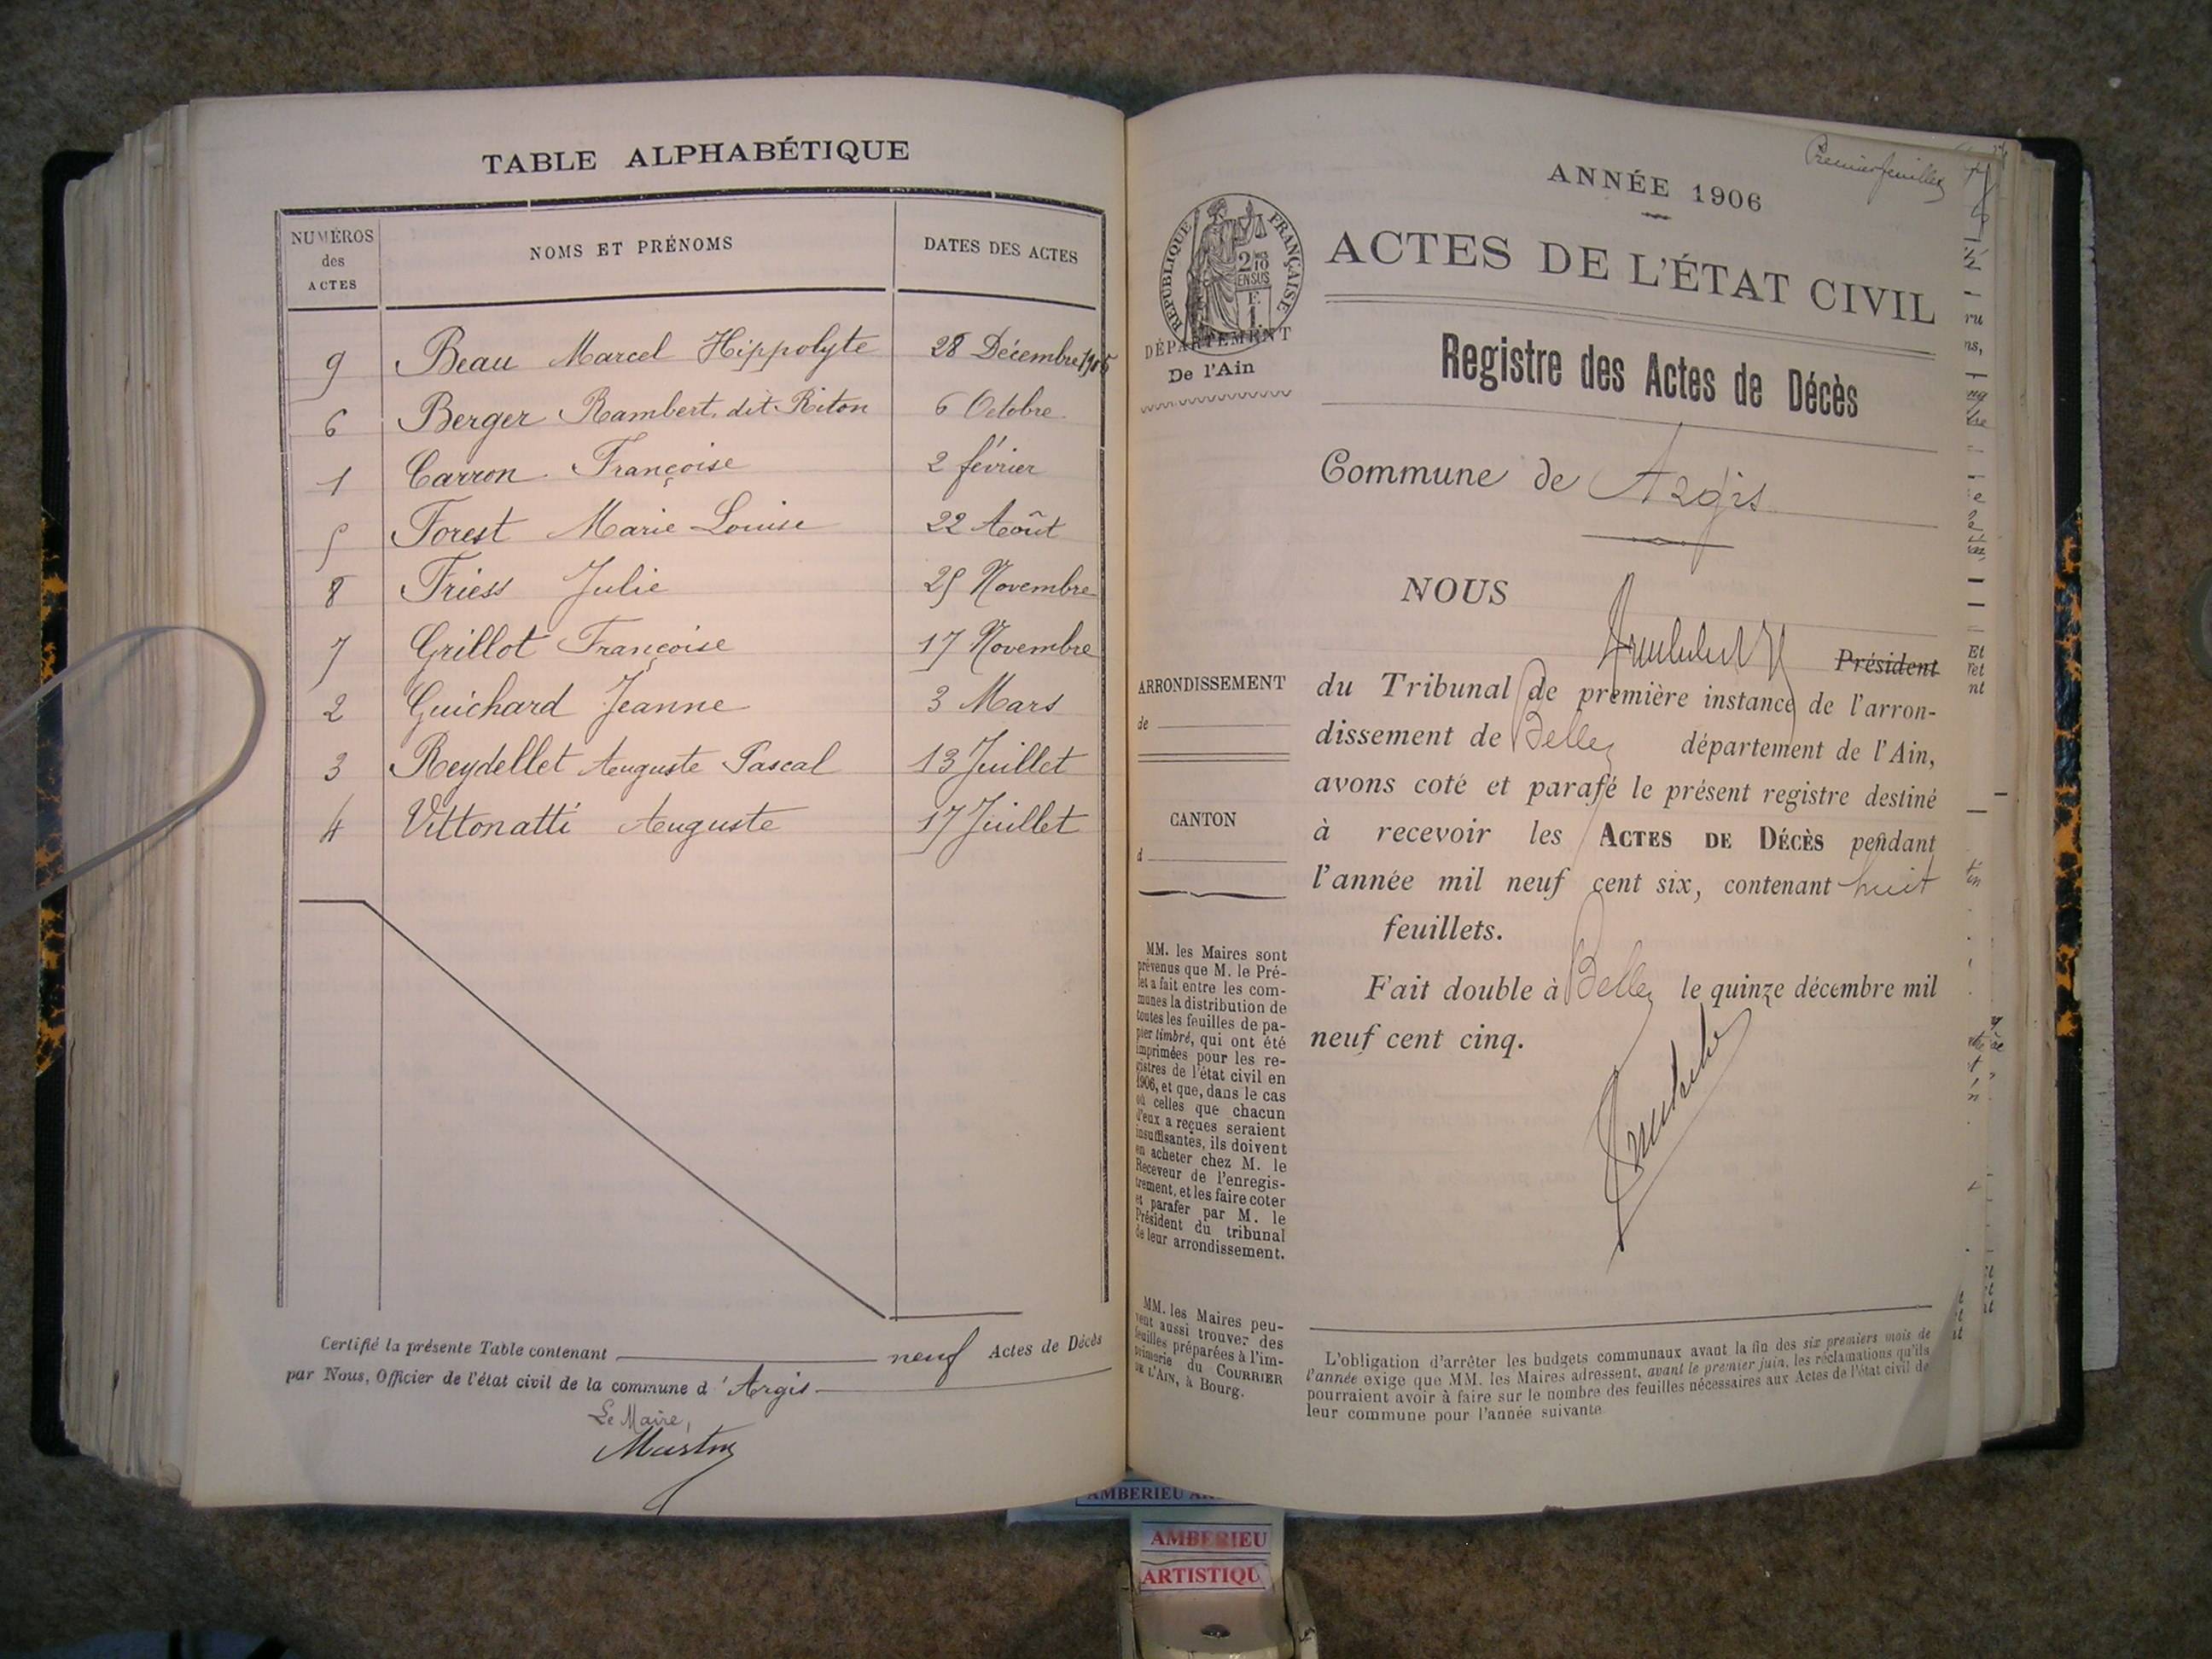 TABLE ALPHABÉTIQUE
NUMÉROS des ACTES NOMS ET PRÉNOMS DATES DES ACTES
9 Beau Marcel Hippolyte 28 Décembre 1905
6 Berger Rambert, dit Riton 6 Octobre
1 Carron Françoise 2 février
5 Forest Marie Louise 22 Août
8 Friess Julie 25 Novembre
7 Grillot Françoise 17 Novembre
2 Guichard Jeanne 3 Mars
3 Reydellet Auguste Pascal 13 Juillet
4 Vittonatti Auguste 17 Juillet
Certifié la présente Table contenant neuf Actes de Décès
par Nous, Officier de l'état civil de la commune d'Argis
Le Maire,
Premier feuillet
ANNÉE 1906
RÉPUBLIQUE FRANÇAISE
2 10
EN SUS
ACTES DE L'ÉTAT CIVIL
DÉPARTEMENT
De l'Ain
Registre des Actes de Décès
Commune de Argis
NOUS
Président
du Tribunal de première instance de l'arron-
dissement de Belley département de l'Ain,
avons coté et parafé le présent registre destiné
à recevoir les ACTES DE DÉCÈS pendant
l'année mil neuf cent six, contenant huit
feuillets.
Fait double à Belley le quinze décembre mil
neuf cent cinq.
ARRONDISSEMENT
de
CANTON
d
MM. les Maires sont
prévenus que M. le Pré-
fet a fait entre les com-
munes la distribution de
toutes les feuilles de pa-
pier timbré, qui ont été
imprimées pour les re-
gistres de l'état civil en
1906, et que, dans le cas
où celles que chacun
d'eux a reçues seraient
insuffisantes, ils doivent
en acheter chez M. le
Receveur de l'enregis-
trement, et les faire coter
et parafer par M. le
Président du tribunal
de leur arrondissement.
MM. les Maires peu-
vent aussi trouver des
feuilles préparées à l'im-
primerie du COURRIER
DE L'AIN, à Bourg.
L'obligation d'arrêter les budgets communaux avant la fin des six premiers mois de
l'année exige que MM. les Maires adressent, avant le premier juin, les réclamations qu'ils
pourraient avoir à faire sur le nombre des feuilles nécessaires aux Actes de l'état civil de
leur commune pour l'année suivante
AMBERIEU
AMBERIEU
ARTISTIQU